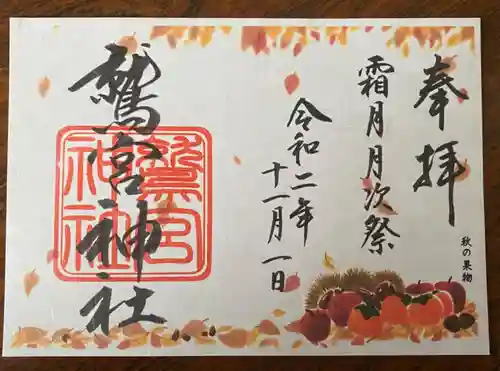 奉拝
霜月月次祭
令和二年
十一月一日
鷲宮神社
鷲宮神社
秋の果物